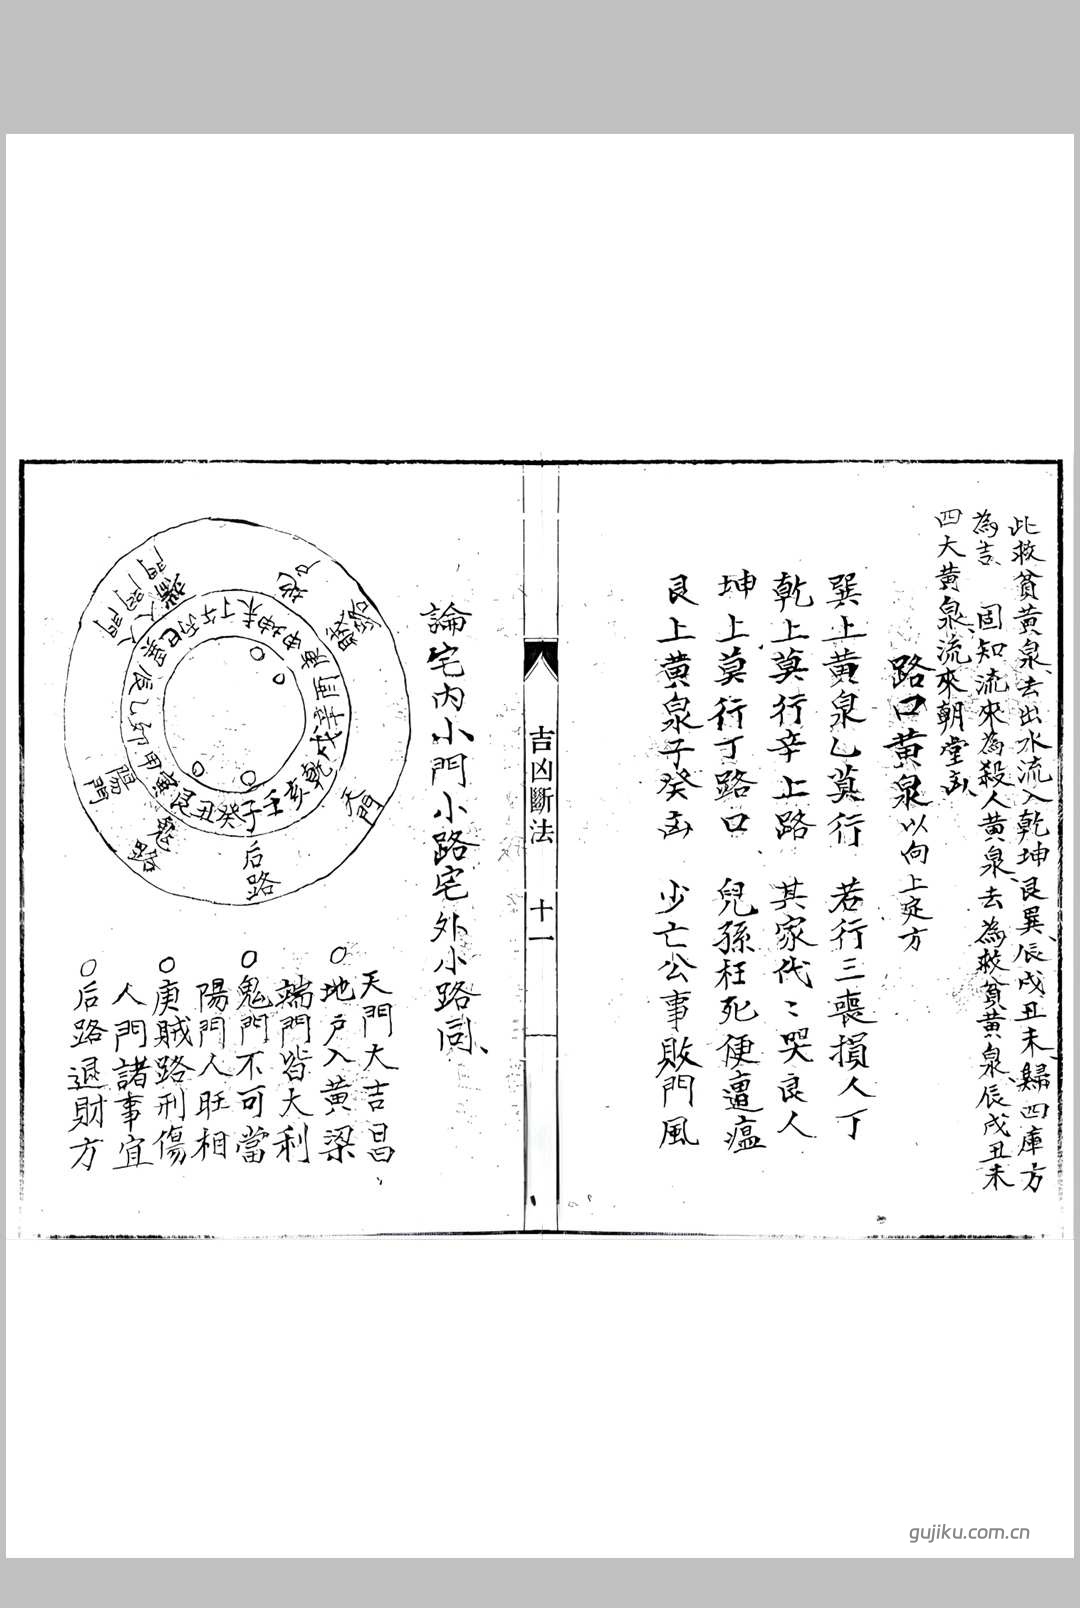 此救貧黃泉、去出水流入乾坤艮巽、辰戌丑未歸四庫方
為吉、固知流來為殺人黃泉、去為救貧黃泉、辰戌丑未
四大黃泉、流來朝堂
路口黃泉以向上定方
巽上黃泉乙莫行 若行三喪損人丁
乾上莫行辛上路 其家代〻哭良人
坤上莫行丁路口 兒孫枉死便遭瘟
艮上黃泉子癸 少亡公事敗門風
吉凶斷法
十一
論宅內小門小路宅外小路同、
地户
賊路
天門
后路
鬼路
陽門
人門
巽巳丙午丁未坤申庚酉辛戌乾亥壬子癸丑艮寅甲卯乙辰
天門大吉昌、
○地户入黃梁
端門皆大利
○鬼門不可當
陽門人旺相
○庚賊路刑傷
人門諸事宜
○后路退財方
gujiku.com.cn